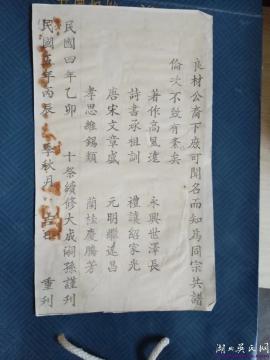 良材公裔下庶可聞名而知為同宗共譜
倫次不致有紊矣
著作高風遠　永興世澤長
詩書承祖訓　禮讓紹家光
唐宋文章盛　元明繼遠昌
孝思維錫類　蘭桂慶騰芳
民國四年乙卯　十祭續修大成嗣孫謹刊
民國五年丙辰　季秋月　重刊
湖北吴氏网